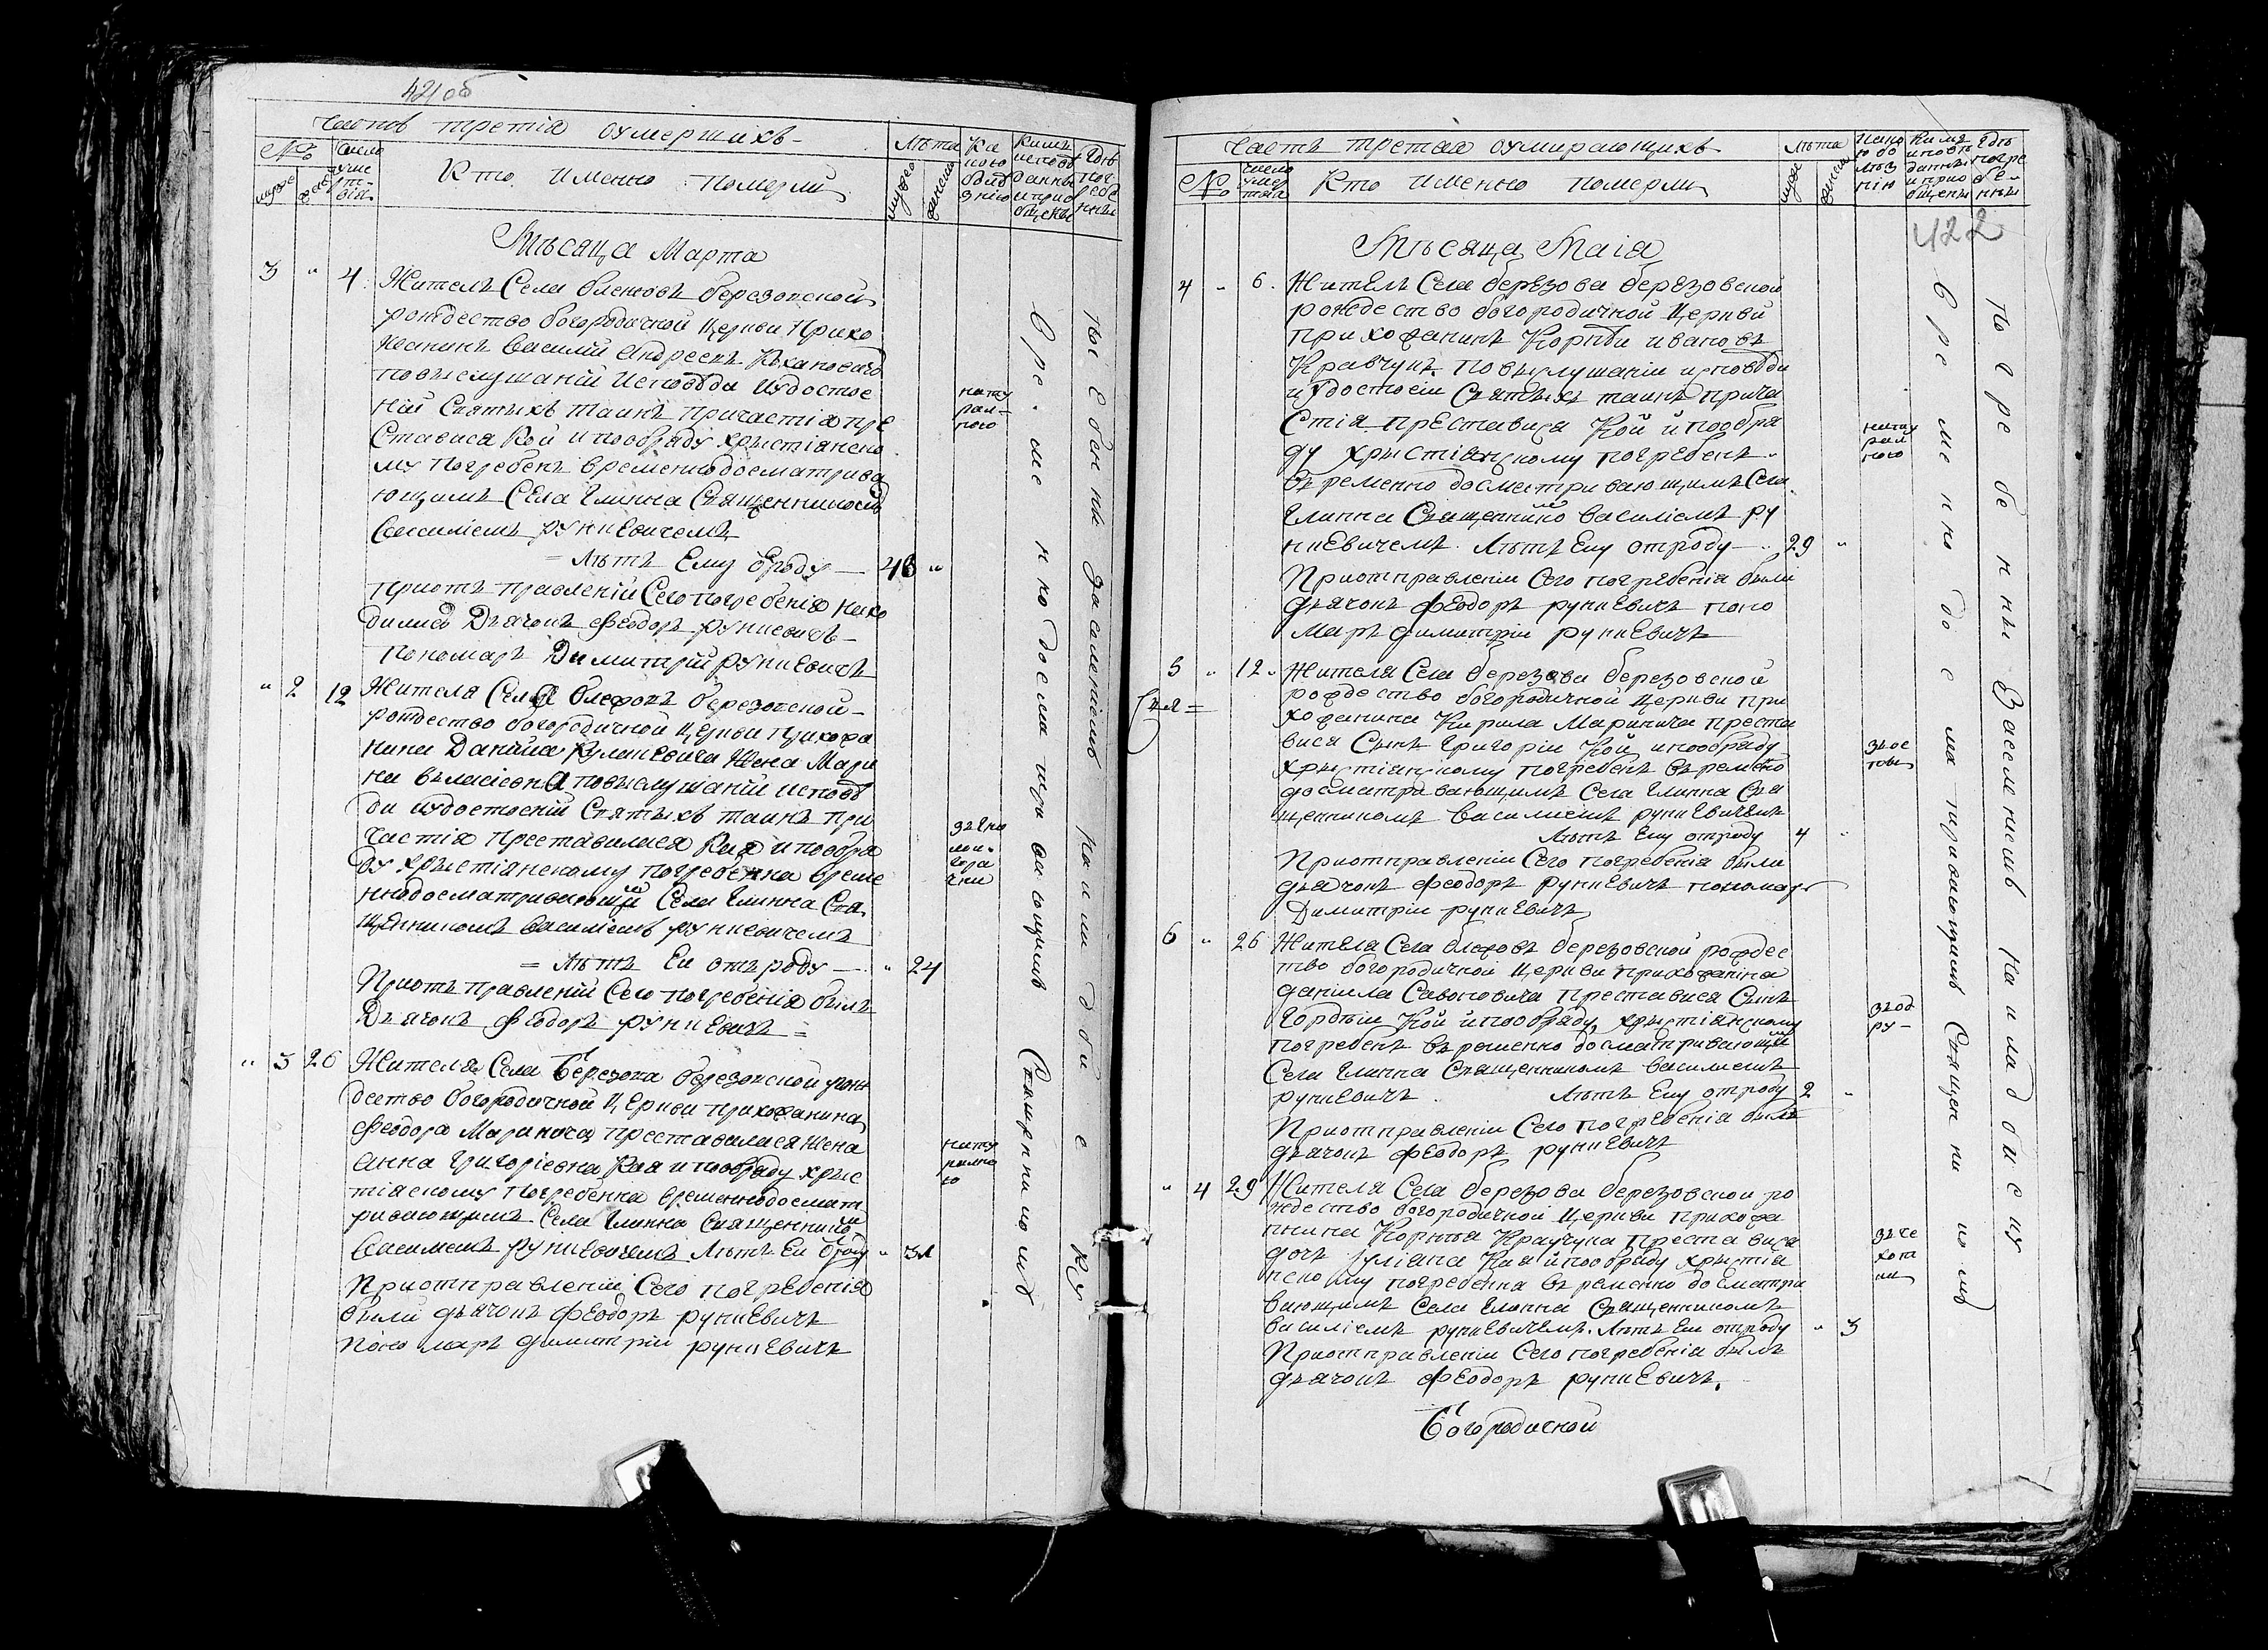 421 об
Часть третія оумершихъ
№
мужес
женс
Число
Кто именно померли
Лѣта
мужеска
женска
Гдѣ
погребе
нны
Мѣсяца Марта
3 " 4.
Житель Села блежовъ березовской
рождество богородичной Церкви Прихо
жанинъ Василий Андреевъ
повыслушаній Исповѣди иудостое
ній Святыхъ таинъ причастія пре
ставися Кой ипообряду христіанско
му погребенъ временнодосматрива
ющимъ Села Глинна Священникомъ
Василіемъ рункевичемъ
= Лѣтъ Ему ѿроду — 48 "
нату
рал-
ного
Приотъправленій Сего погребенія нахо
дились Дьячокъ Феодоръ рункевичъ
Пономарь Димитрій рункевичъ
" 2 12
Жителя Села блежовъ березовской
рождество богородичной Церкви прихожа
нина Даніила Жена Мари
на повыслушаній исповѣ
ди иудостоеній Святыхъ таинъ при
частія Преставилася Кая ипообря
ду христіанскому погребенна време
ннодосматривающи Села Глинна Свя
щенникомъ Василіемъ рункевичемъ
= Лѣтъ Ей отъ роду — " 24
Приотъ правленій Сего погребенія былъ
Дьячокъ Феодоръ рункевичъ =
" 3 26
Жителя Села Березова березовской рож
дество богородичной Церкви прихожанина
Феодора Маринича преставилася Жена
Анна Григоріевна Кая ипообряду хрис
тіанскому погребенна временнодосмат
ривающимъ Села Глинна Священнико
Василіемъ рункевичемъ Лѣтъ Ей ѿроду " 31
нату
рално
го
Приотправленіи Сего погребенія
были дьячокъ Феодоръ рункевичъ
Поно маръ димитрій рункевичъ
Временно досматривающимъ Священникомъ
погребенны Заселениемъ на кладбиску
Часть третая оумирающихъ
№
число
умер
твія
Кто именно померли
Лѣта
муже
женска
Како
ю бо
лѣз
нію
Кимъ
исповѣ
данны
и прио
бщены
Гдѣ
погре
бе-
нны
422
Мѣсяца Маія
4 " 6.
Житель Села березова березовской
рождество богородичной Церкви
прихожанинъ Корнѣй ивановъ
Кравчукъ повыслушаніи исповѣди
иудостоеіи Святыхъ таинъ прича
стія преставися Кой ипообря
ду христіанскому погребенъ
временно досматривающимъ Села
Глинна Священнико Василіемъ ру
нкевичемъ. Лѣтъ Ему отроду — 29 "
нату
рал
ного
Приотправленіи Сего погребенія были
дьячокъ Феодоръ рункевичъ поно
маръ димитрій рункевичъ
5 " 12.
Жителя Села березова березовской
рождество богородичной Церкви при
хожанина Кирила Маринича преста
вися Сынъ Григорій Кой ипообряду
христіанскому погребенъ временно
досматривающимъ Села Глинна Свя
щенникомъ Василиемъ рункевичемъ
Лѣтъ Ему отроду 4 "
Приотправленіи Сего погребенія были
дьячокъ Феодоръ рункевичъ пономаръ
Димитрій рункевичъ
6 " 26
Жителя Села блежовъ березовской рождес
тво богородичной Церкви прихожанина
даніила Савоновича преставися Сынъ
Гордѣй Кой ипообряду христіанскому
погребенъ временно досматривающи
Села Глинна Священникомъ Василиемъ
рункевичъ. Лѣтъ Ему отроду 2 "
Приотправленіи Сего погребенія былъ
дьячокъ Феодоръ рункевичъ
" 4 29
Жителя Села березова березовской ро
ждество богородичной Церкви прихожа
нина Корнѣя Краучука преставися
дочь Іуліана Кая ипообряду христіа
нскому погребенна временно досматри
вающимъ Села Глинна Священникомъ
Василіемъ рункевичемъ. Лѣтъ Ей отроду " 3
Приотправленіи Сего погребенія былъ
дьячокъ Феодоръ рункевичъ.
Временно досматривающимъ Священникомъ
Погребенны Заселениемъ на кладбиску
Богородичной